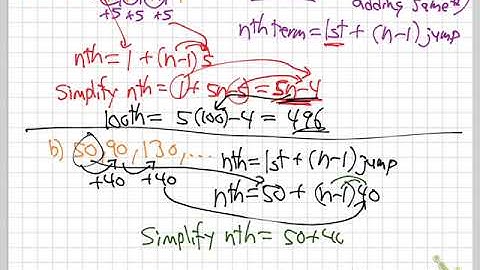 +5 +5 +5
adding same #)
nth term = 1st + (n-1) jump
nth = 1 + (n-1) 5
Simplify nth = 1 + 5n - 5 = 5n-4
100th = 5(100) - 4 = 496
b) 50, 90, 130, ...
+40 +40
nth = 1st + (n-1) jump
nth = 50 + (n-1) 40
Simplify nth = 50 + 40